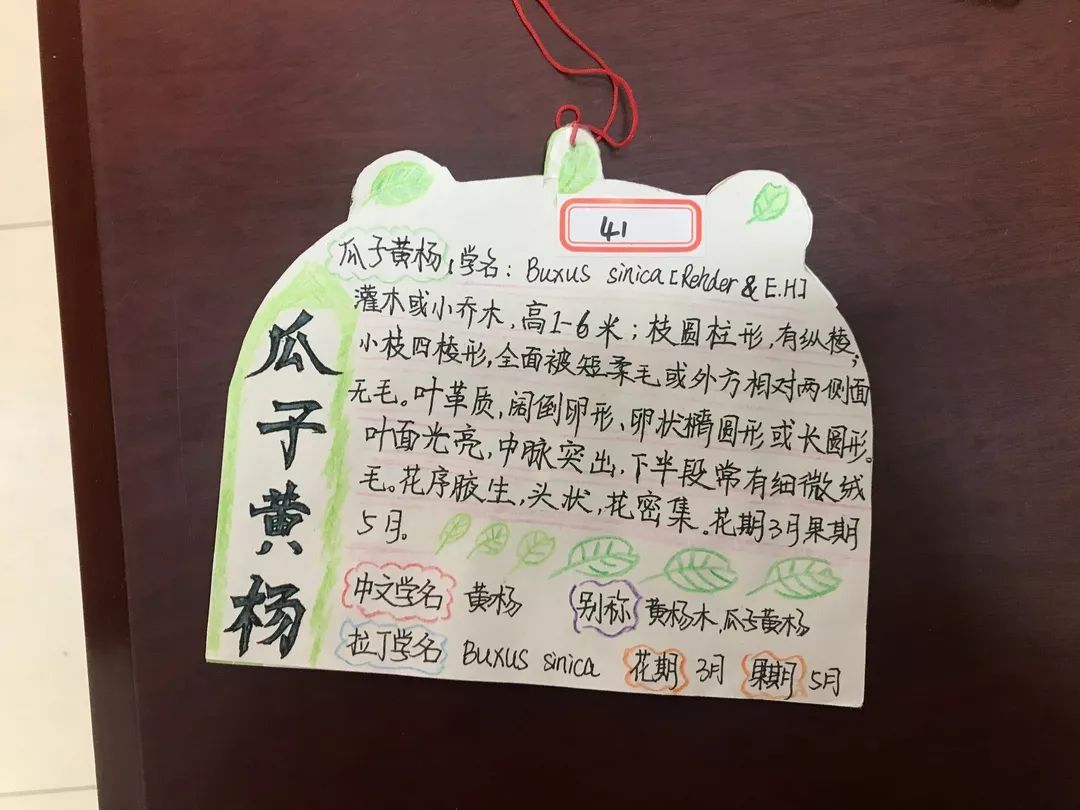 41
瓜子黄杨，学名：Buxus sinica [Rehder & E.H]
灌木或小乔木，高1-6米；枝圆柱形，有纵棱，
小枝四棱形，全面被短柔毛或外方相对两侧面
无毛。叶革质，阔倒卵形、卵状椭圆形或长圆形。
叶面光亮，中脉突出，下半段常有细微绒
毛。花序腋生，头状，花密集。花期3月果期
5月。
瓜子黄杨
中文学名 黄杨 别称 黄杨木，瓜子黄杨
拉丁学名 Buxus sinica 花期 3月 果期 5月